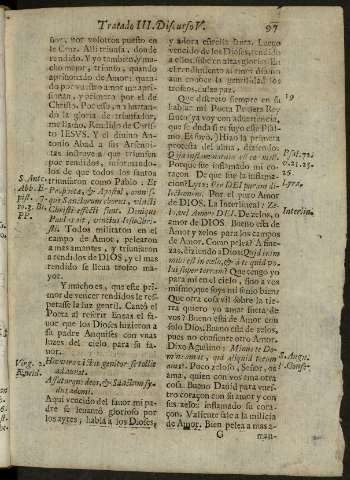 Tratado III. Discurso V. 97
sor, por vosotros puesto en
la Cruz. Alli triunfa, donde
rendido. Y yo tambien, y mu-
cho mejor, triunfo, quando
aprisionado de Amor; quan-
do por vuestro amor me apri-
sionan, y primero por el de
Christo. Por esso, à a hurtan-
do la gloria de triunfador,
me llamo, Rendido de Chris-
to IESVS. Y el divino An-
tonio Abad a sus Arsenoi-
tas instruye a que triunfen
por rendidos, informando-
los de que todos los santos
S. Ant. triunfaron como Pablo:
Abb. E-
pist.
20.3. Bi.
PP.
Prophetæ, & Apostoli, omnis-
que Sanctorum chorus, vincti
Christi effecti sunt. Denique
Paulus ait, vinctus Iesu Chri-
sti. Todos militaron en el
campo de Amor, pelearon
a mas amantes, y triunfaron
a rendidos de DIOS, y el mas
rendido se lleua trofeo ma-
yor.
Y mucho es, que este pri-
mor de vencer rendidos le res-
petasse la luz gentil. Cantó el
Poeta al referir lineas el fa-
uor que los Dioses hizieron a
su padre Anquises con vnas
luzes del cielo, para su fa-
uor.
Virg. 2.
Æneid.
Hic vero victus genitor se tollit
ad auras,
Affaturque deos, & Sanctum sy-
dus adorat.
Aqui vencido del fauor mi pa-
dre se leuantó glorioso por
los ayres, habló a los Dioses,
y adora estrella santa. Luego
vencido de los Dioses, rendido
a ellos, sube en altas glorias. El
el rendimiento al amor diuino
aun conoce la gentilidad los
trofeos, da las palmas.
19
Que discreto siempre en su
hablar mi Poeta Profeta Rey
santo: ya voy con aduertencia,
que se duda si es suyo este Psal-
mo. Es suyo. Hizo la primera
protesta del alma, diziendo:
Psal. 72.
v. 21. 25.
25.
Quia inflammatum est cor meum.
Porque fue inflamado mi co-
raçon. De que fue la inflama-
cion?
Lyra.
Lyra: Per DEI puram di-
lectionem. Por el puro Amor
de DIOS.
Interlin.
La Interlineal: Ze-
lo, vel Amore DEI. De zelos, o
amor de DIOS. Bueno està de
Amor y zelos para los campos
de Amor. Como pelea? A fine-
zas, diziendo a Dios: Quid enim
mihi est in cœlo, & à te quid vo-
lui super terram? Que tengo yo
para mi en el cielo, sino a vos
mismo, que soys mi sumo bien?
Que otra cosa vil sobre la tie-
rra quiero yo amar fuera de
vos? Bueno està de Amor con
solo Dios. Bueno està de zelos,
pues no consiente otro Amor.
Dixo Agustino:
S. Augu.
Confess.
Minus te Do-
mine amat, qui aliquid tecum
amat. Poco zeloso, Señor, os
ama, quien con vos ama otra
cosa. Bueno Dauid para vues-
tro coraçon con su amor y con
sus zelos: inflamado su cora-
çon. Valiente sale a la milicia
de Amor. Bien pelea a mas a-
G
man-